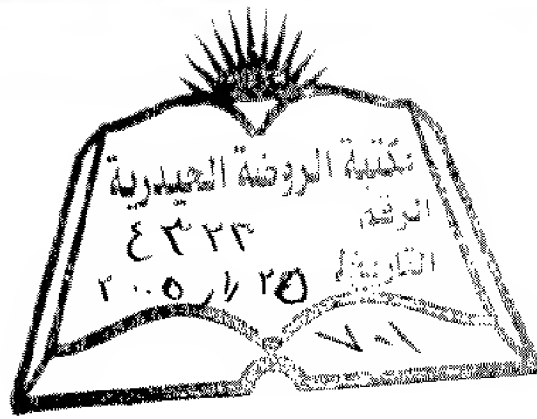 مكتبة الروضة الحيدرية
الرقم
٤٣٢٣
التاريخ
٢٥
٢٠٠٥